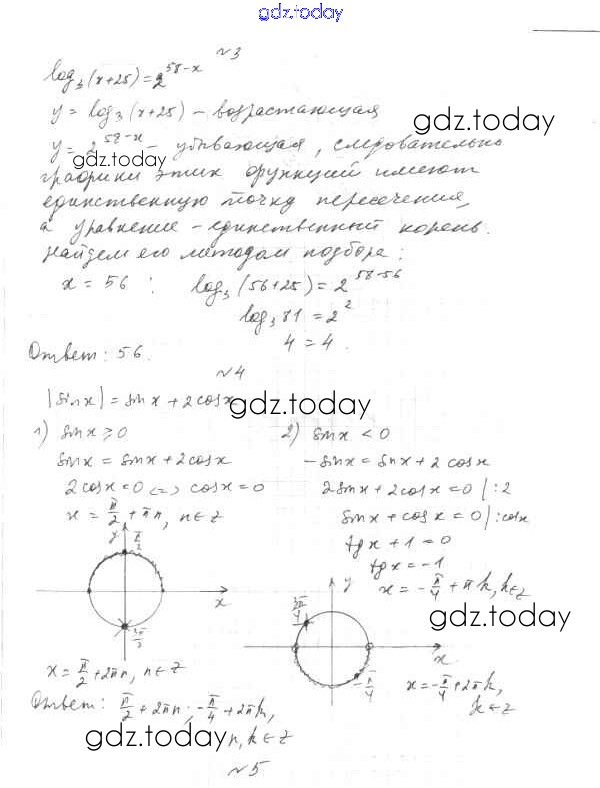 gdz.today
№3
log₃(x+25)=2^(58-x)
y = log₃(x+25) – возрастающая
gdz.today
y = 2^(58-x) – убывающая, следовательно
gdz.today
графики этих функций имеют
единственную точку пересечения,
а уравнение – единственный корень.
Найдем его методом подбора:
x = 56 : log₃(56+25) = 2^(58-56)
log₃81 = 2²
4 = 4.
Ответ: 56.
№4
|sin x| = sin x + 2cos x
gdz.today
1) sin x ≥ 0
sin x = sin x + 2cos x
2cos x = 0 <=> cos x = 0
x = π/2 + πn, n∈Z
y
π/2
x
x = π/2 + 2πn, n∈Z
2) sin x < 0
-sin x = sin x + 2cos x
2sin x + 2cos x = 0 |:2
sin x + cos x = 0 |:cos x
tg x + 1 = 0
tg x = -1
x = -π/4 + πk, k∈Z
gdz.today
y
3π/4
x
-π/4
x = -π/4 + 2πk,
k∈Z
Ответ: π/2 + 2πn; -π/4 + 2πk,
gdz.today
n, k∈Z
№5